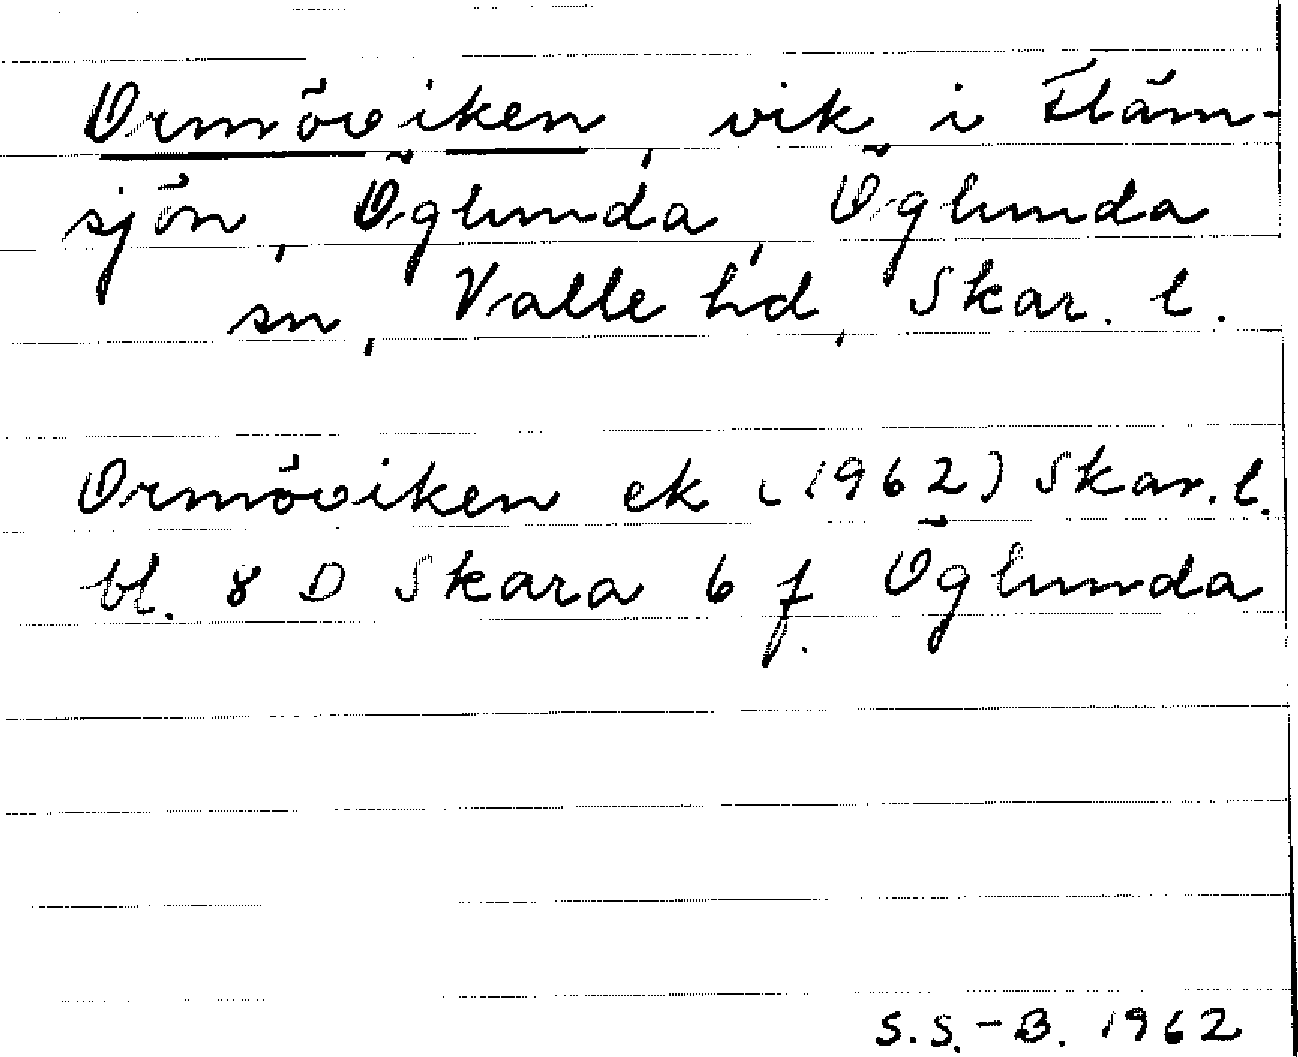 Ormöviken, vik i Fläm-
sjön, Öglunda, Öglunda
sn, Valle hd, Skar. l.
Ormöviken ek (1962) Skar. l.
bl. 8 D Skara 6 f. Öglunda
S.S.-B. 1962